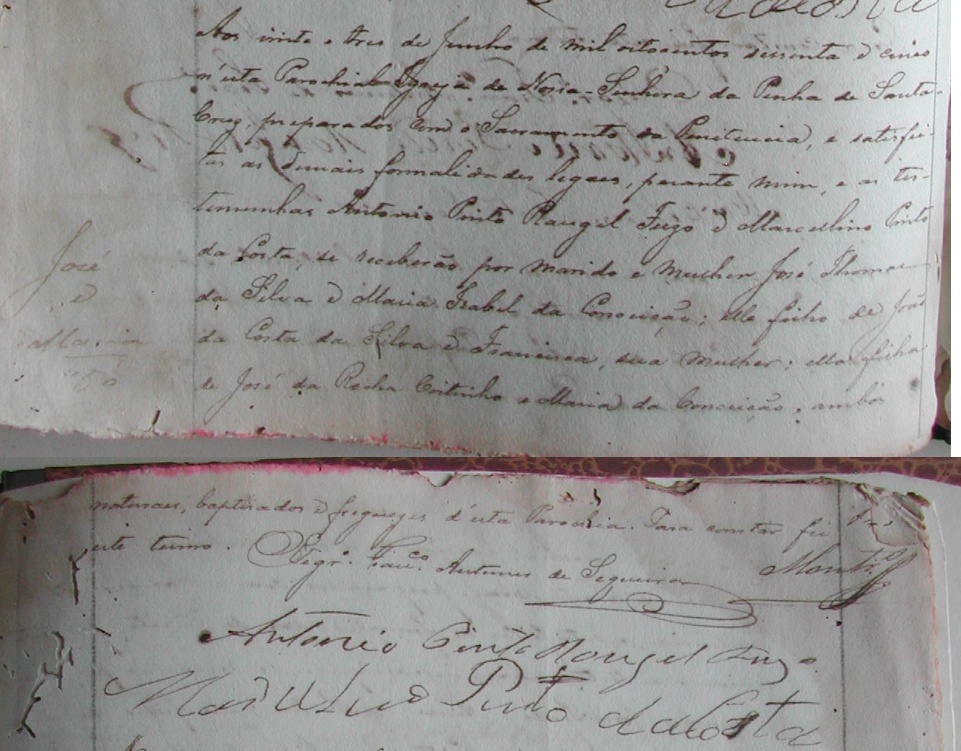 Aos vinte e tres de Junho de mil oitocentos sessenta e cinco
n'esta Parochial Igreja de Nossa Senhora da Penha de Santa-
Cruz, preparados com o Sacramento da Penitencia, e satisfei-
tas as demais formalidades legaes, perante mim, e as tes-
temunhas Antonio Pinto Rangel e Marcellino Pinto
da Costa, se receberão por marido e mulher José Thomas
da Silva e Maria Izabel da Conceição; elle filho de João
da Costa da Silva e Francisca, sua mulher; ella filha
de José da Rocha Coitinho e Maria da Conceição, ambos
José
e
Maria
naturaes, baptizados e freguezes d'esta Parochia. Para constar fiz
este termo. Antunes de Sequeira
Antonio Pinto Rangel
Pinto da Costa